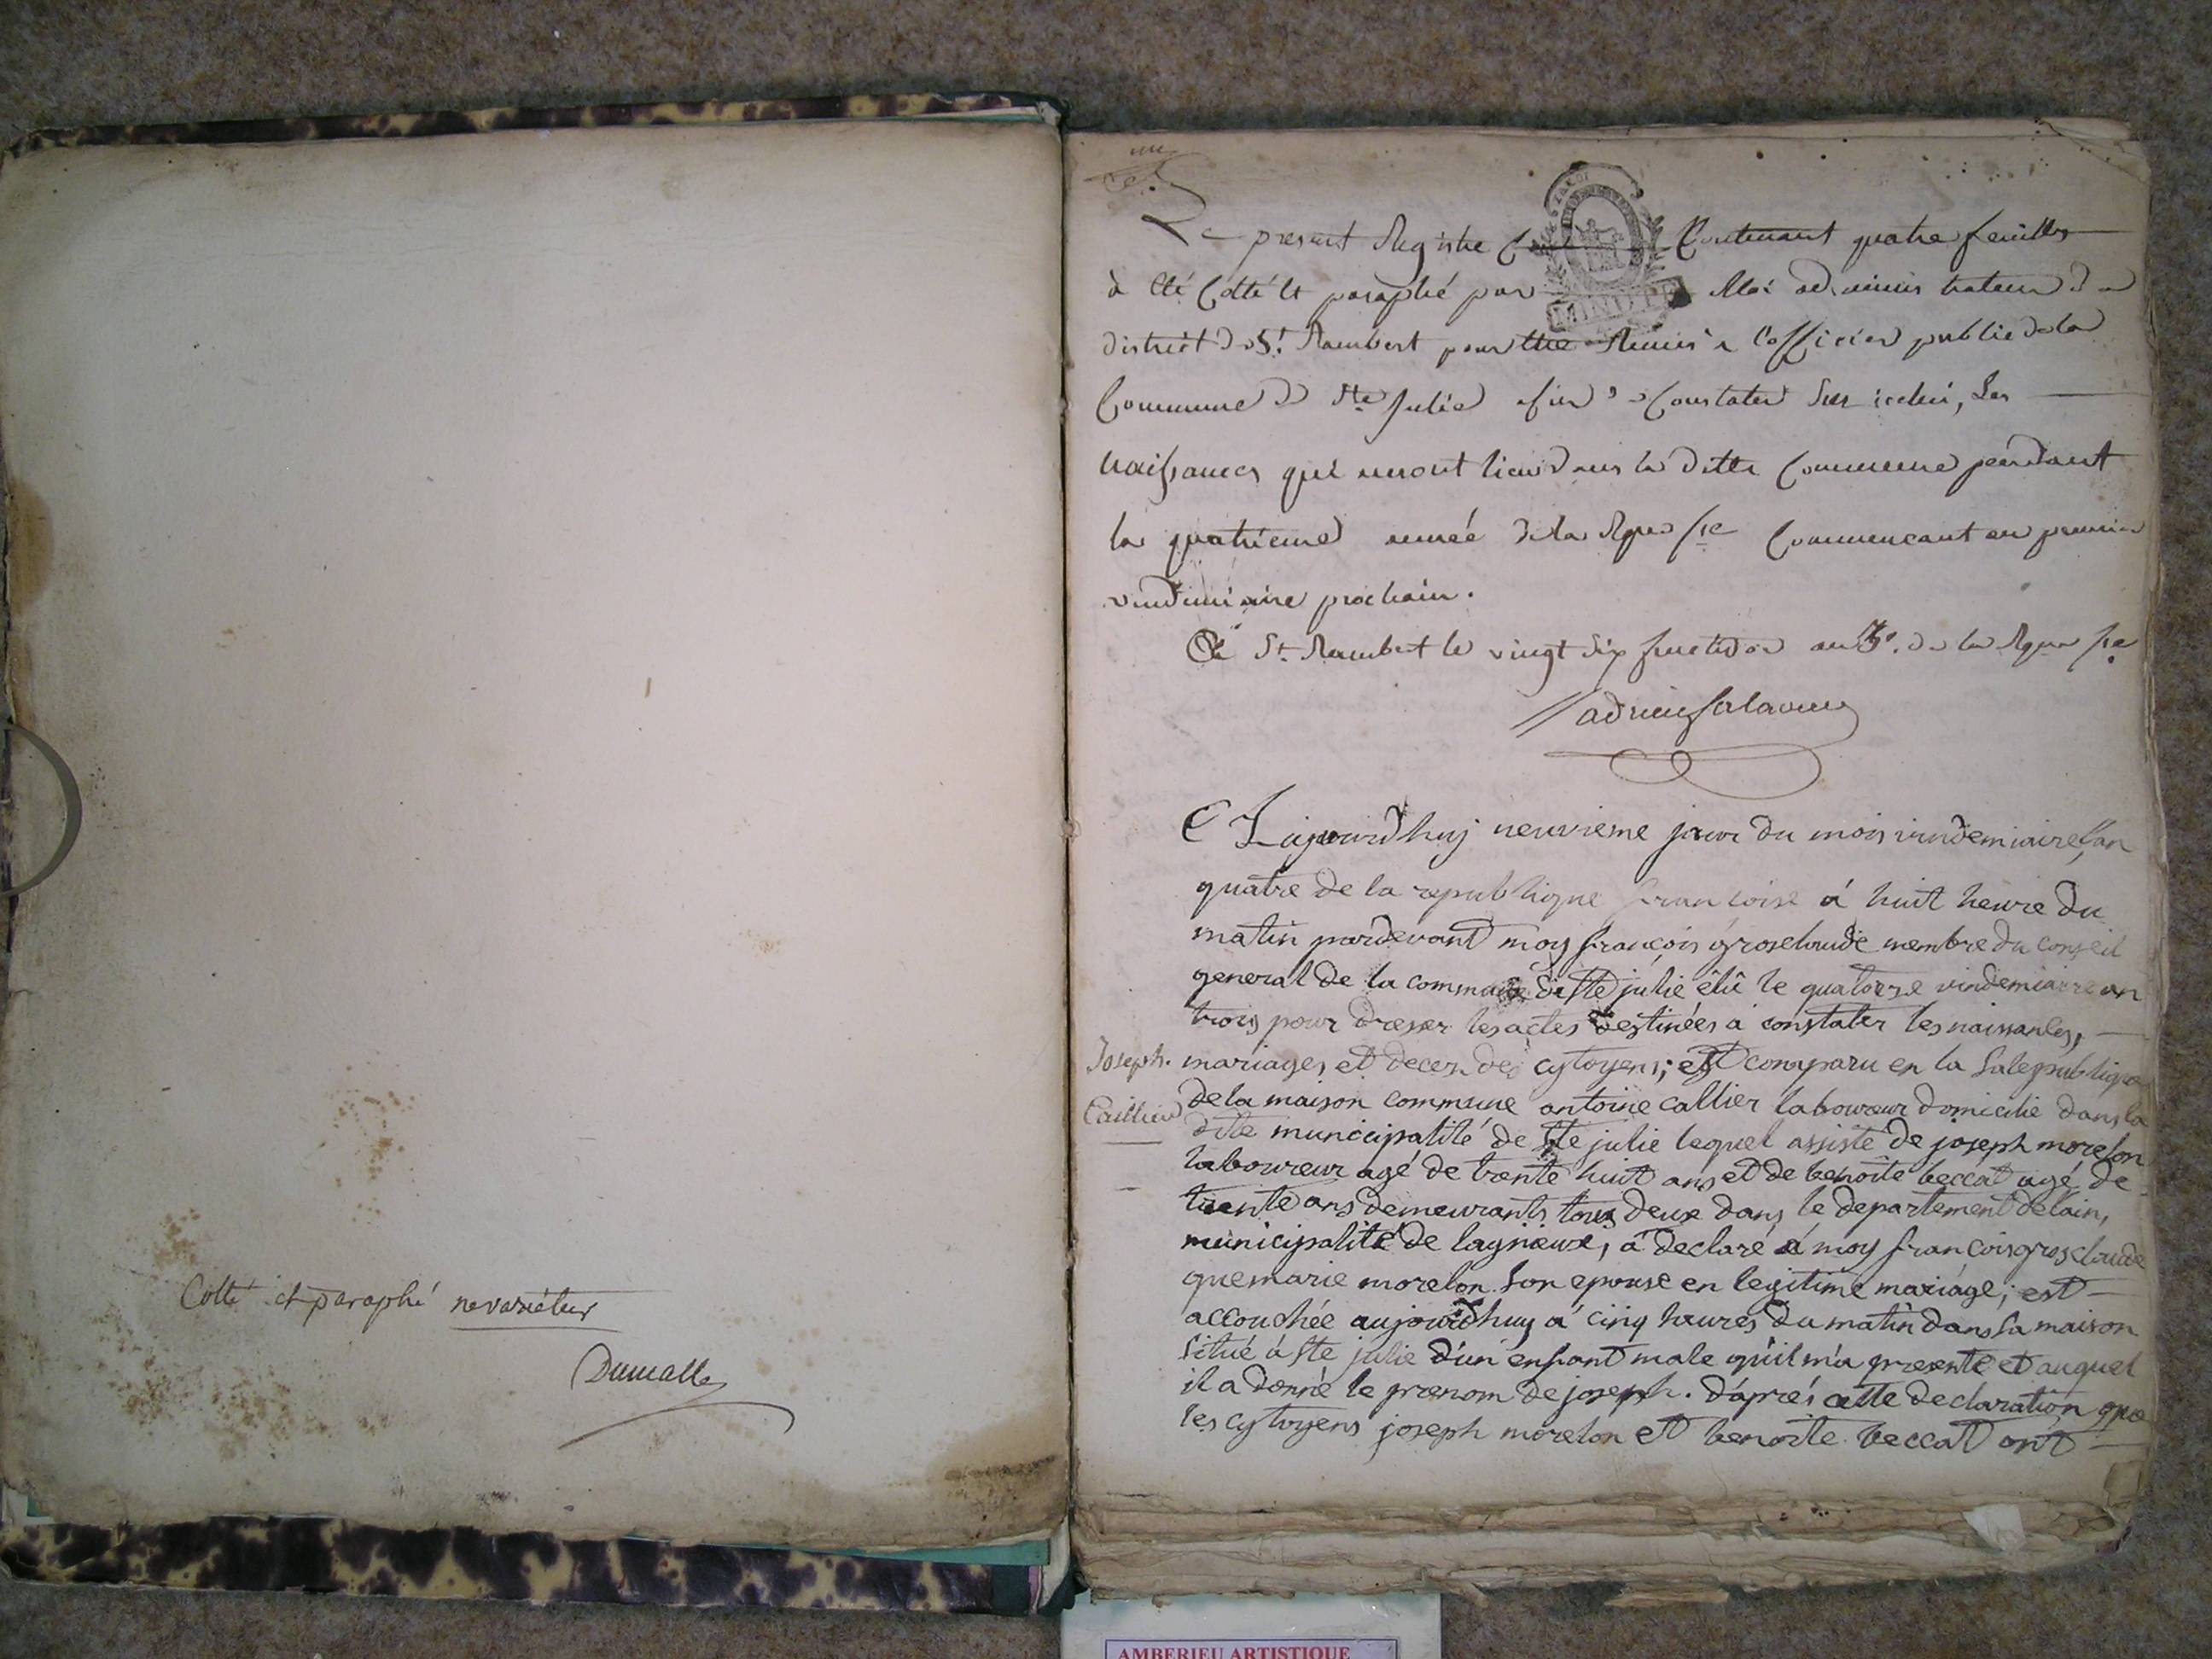 Cotté et paraphé ne varietur
Dumalle
Le present Registre Contenant quatre feuilles
à été Cotté et paraphé par Moi administrateur du
district de St. Rambert pour être Remis a l'officier public de la
Commune de Ste Julie afin de Constater Sur icelui, Les
naissances qui auront lieu dans la ditte Commune pendant
la quatrieme année de la Rque fse Commencant au premier
vendemiaire prochain.
A St. Rambert le vingt six fructidor an 3e. de la Rque fse
aujourdhuy neuvieme jour du mois vindemiaire, lan
quatre de la republique francoise á huit heure du
matin pardevant moy françois grosclaude membre du conseil
general de la commune de Ste julie élû le quatorze vindemiaire an
trois pour dresser les actes destinées a constater les naissances,
Joseph. mariages et deces des cytoyens; est comparu en la Sale publique
Caillier de la maison commune antoine callier laboureur domicilié dans la
dite municipalité de Ste julie lequel assisté de joseph morelon
laboureur agé de trente huit ans et de benoite beccat agé de
trente ans demeurants tous deux dans le departement de lain,
municipalité de lagnieux, a declaré á moy francois grosclaude
que marie morelon Son epouse en legitime mariage; est
accouchée aujourdhuy a cinq heures du matin dans Sa maison
Situé á Ste julie d'un enfant male qu'il m'a presenté et auquel
il a donné le prenom de joseph. d'aprés cette declaration que
les cytoyens joseph morelon et benoite beccat ont
MINUTE
AMBERIEU ARTISTIQUE